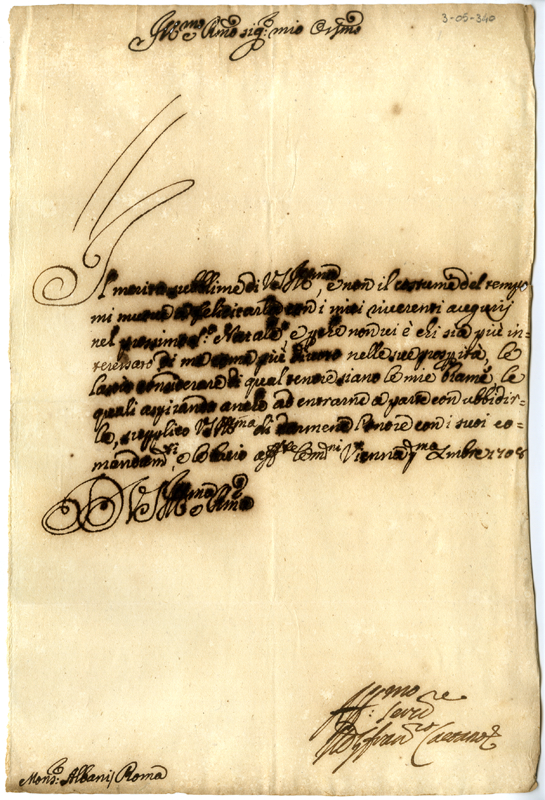 3-05-340
Ill.mo e R.mo Sig.r mio Oss.mo
Il merito sublime di V.S. Ill.ma, e non il costume del tempo
mi muove a felicitarla con i miei riverenti augurij
nel prossimo S.to Natale, e perche non vi è chi sia più in-
teressato di me come più divoto nelle sue prosperità, le
lascio considerare di qual tenore siano le mie brame, le
quali aspirando anche ad entrarne a parte con ubbidir-
la, supplico V.S. Ill.ma di darmene l'onore con i suoi co-
mandam.ti, e le bacio aff.te le mani Vienna p.ma Xmbre 1708
D V.S. Ill.ma e R.ma
Aff.mo
Serv.re
Caetano
Mons.r Albani / Roma